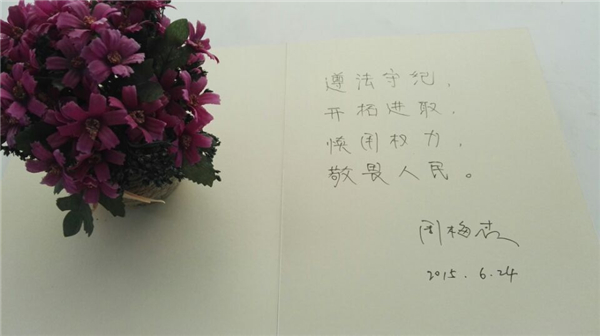 遵法守纪，
开拓进取，
慎用权力，
敬畏人民。
周梅森
2015.6.24